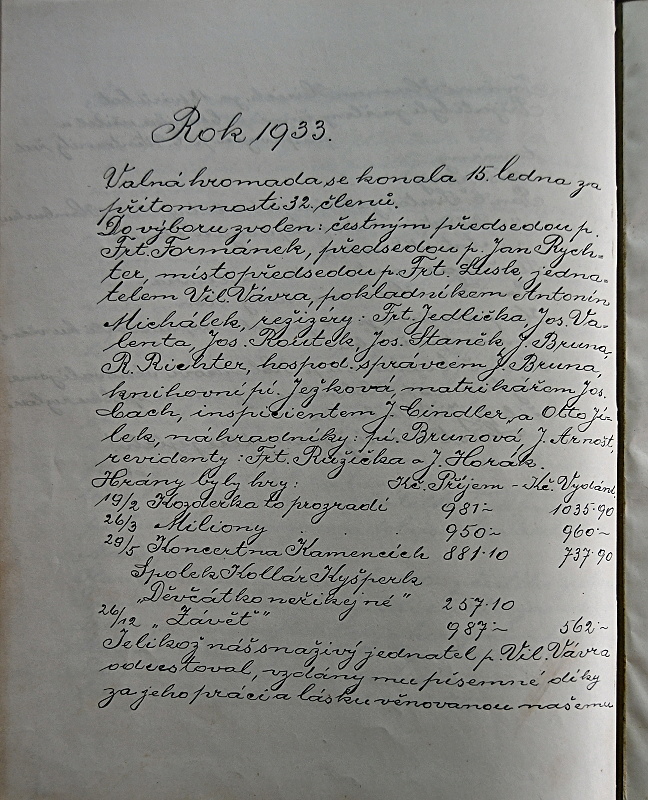 Rok 1933.
Valná hromada se konala 15. ledna za
přítomnosti 32. členů.
Do výboru zvolen: čestným předsedou p.
Frt. Formánek, předsedou p. Jan Rych-
ter, místopředsedou p. Frt. Lusk, jedna-
telem Vil. Vávra, pokladníkem Antonín
Michálek, režizéry: Frt. Jedlička, Jos. Va-
lenta, Jos. Koutek, Jos. Staněk, J. Bruna,
R. Richter, hospod. správcem J. Bruna,
knihovní pí. Ježková, matrikářem Jos.
Cach, inspicientem J. Cindler, a Otto Jí-
lek, náhradníky: pí. Brunová, J. Arnošt,
revidenty: Frt. Růžička a J. Horák.
Hrány byly hry: Kč. Příjem - Kč. Vydání
19/2 Kozderka to prozradí 981·- 1035·90
26/3 Miliony 950·- 960·-
29/5 Koncert na Kamencích 881·10 737·90
Spolek Kollár Kyšperk
„Děvčátko neříkej né" 257·10
26/12 „Závěť" 987·- 562·-
Jelikož náš snaživý jednatel p. Vil. Vávra
odcestoval, vzdány mu písemné díky
za jeho práci a lásku věnovanou našemu